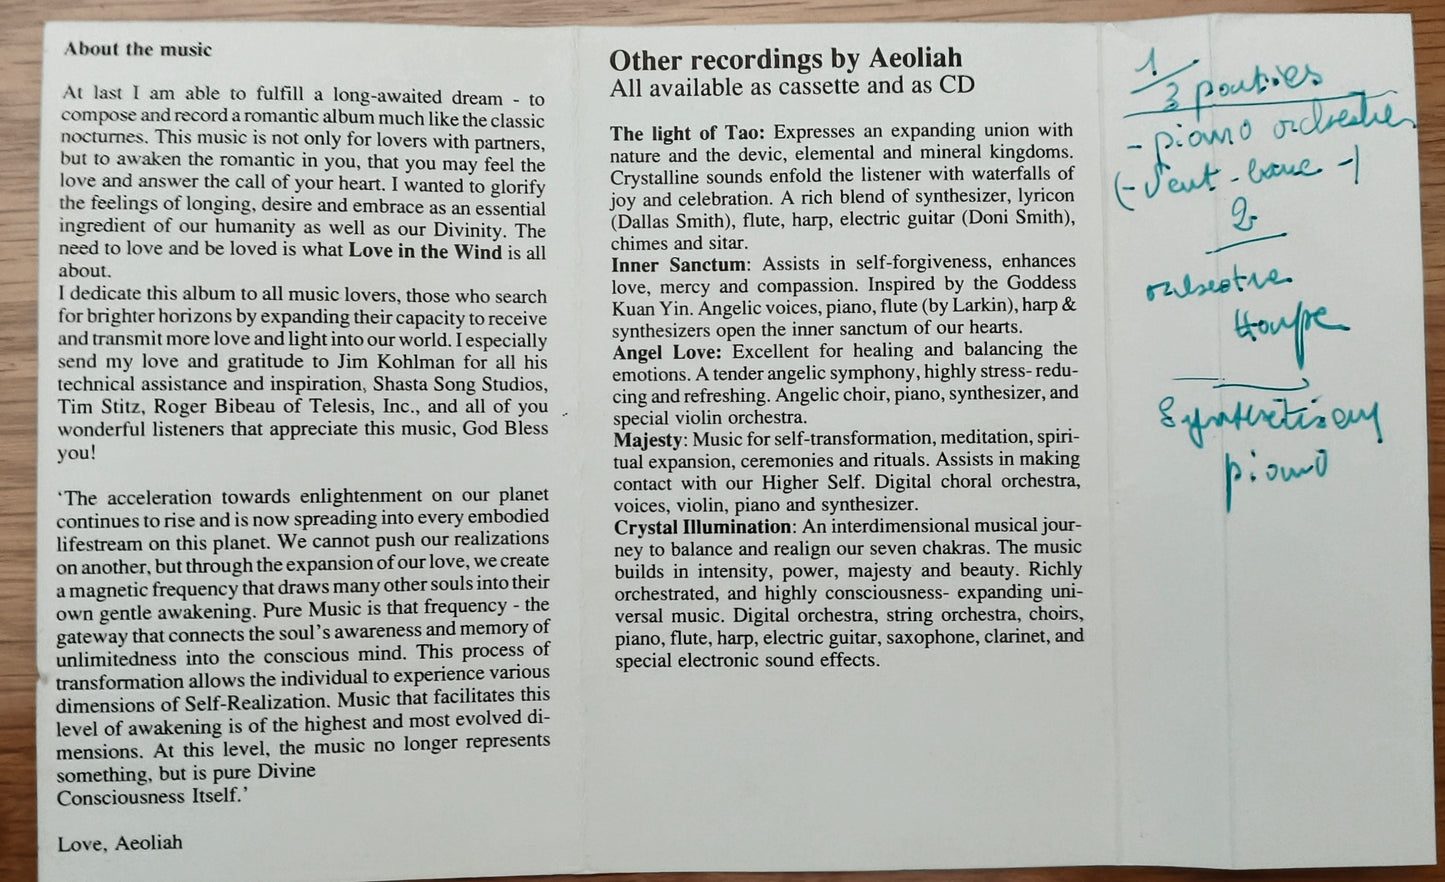 About the music
At last I am able to fulfill a long-awaited dream - to
compose and record a romantic album much like the classic
nocturnes. This music is not only for lovers with partners,
but to awaken the romantic in you, that you may feel the
love and answer the call of your heart. I wanted to glorify
the feelings of longing, desire and embrace as an essential
ingredient of our humanity as well as our Divinity. The
need to love and be loved is what Love in the Wind is all
about.
I dedicate this album to all music lovers, those who search
for brighter horizons by expanding their capacity to receive
and transmit more love and light into our world. I especially
send my love and gratitude to Jim Kohlman for all his
technical assistance and inspiration, Shasta Song Studios,
Tim Stitz, Roger Bibeau of Telesis, Inc., and all of you
wonderful listeners that appreciate this music, God Bless
you!
‘The acceleration towards enlightenment on our planet
continues to rise and is now spreading into every embodied
lifestream on this planet. We cannot push our realizations
on another, but through the expansion of our love, we create
a magnetic frequency that draws many other souls into their
own gentle awakening. Pure Music is that frequency - the
gateway that connects the soul’s awareness and memory of
unlimitedness into the conscious mind. This process of
transformation allows the individual to experience various
dimensions of Self-Realization. Music that facilitates this
level of awakening is of the highest and most evolved di-
mensions. At this level, the music no longer represents
something, but is pure Divine
Consciousness Itself.’
Love, Aeoliah
Other recordings by Aeoliah
All available as cassette and as CD
The light of Tao: Expresses an expanding union with
nature and the devic, elemental and mineral kingdoms.
Crystalline sounds enfold the listener with waterfalls of
joy and celebration. A rich blend of synthesizer, lyricon
(Dallas Smith), flute, harp, electric guitar (Doni Smith),
chimes and sitar.
Inner Sanctum: Assists in self-forgiveness, enhances
love, mercy and compassion. Inspired by the Goddess
Kuan Yin. Angelic voices, piano, flute (by Larkin), harp &
synthesizers open the inner sanctum of our hearts.
Angel Love: Excellent for healing and balancing the
emotions. A tender angelic symphony, highly stress- redu-
cing and refreshing. Angelic choir, piano, synthesizer, and
special violin orchestra.
Majesty: Music for self-transformation, meditation, spiri-
tual expansion, ceremonies and rituals. Assists in making
contact with our Higher Self. Digital choral orchestra,
voices, violin, piano and synthesizer.
Crystal Illumination: An interdimensional musical jour-
ney to balance and realign our seven chakras. The music
builds in intensity, power, majesty and beauty. Richly
orchestrated, and highly consciousness- expanding uni-
versal music. Digital orchestra, string orchestra, choirs,
piano, flute, harp, electric guitar, saxophone, clarinet, and
special electronic sound effects.
1
3 parties
- piano orchestre
2
orchestre
Harpe
piano